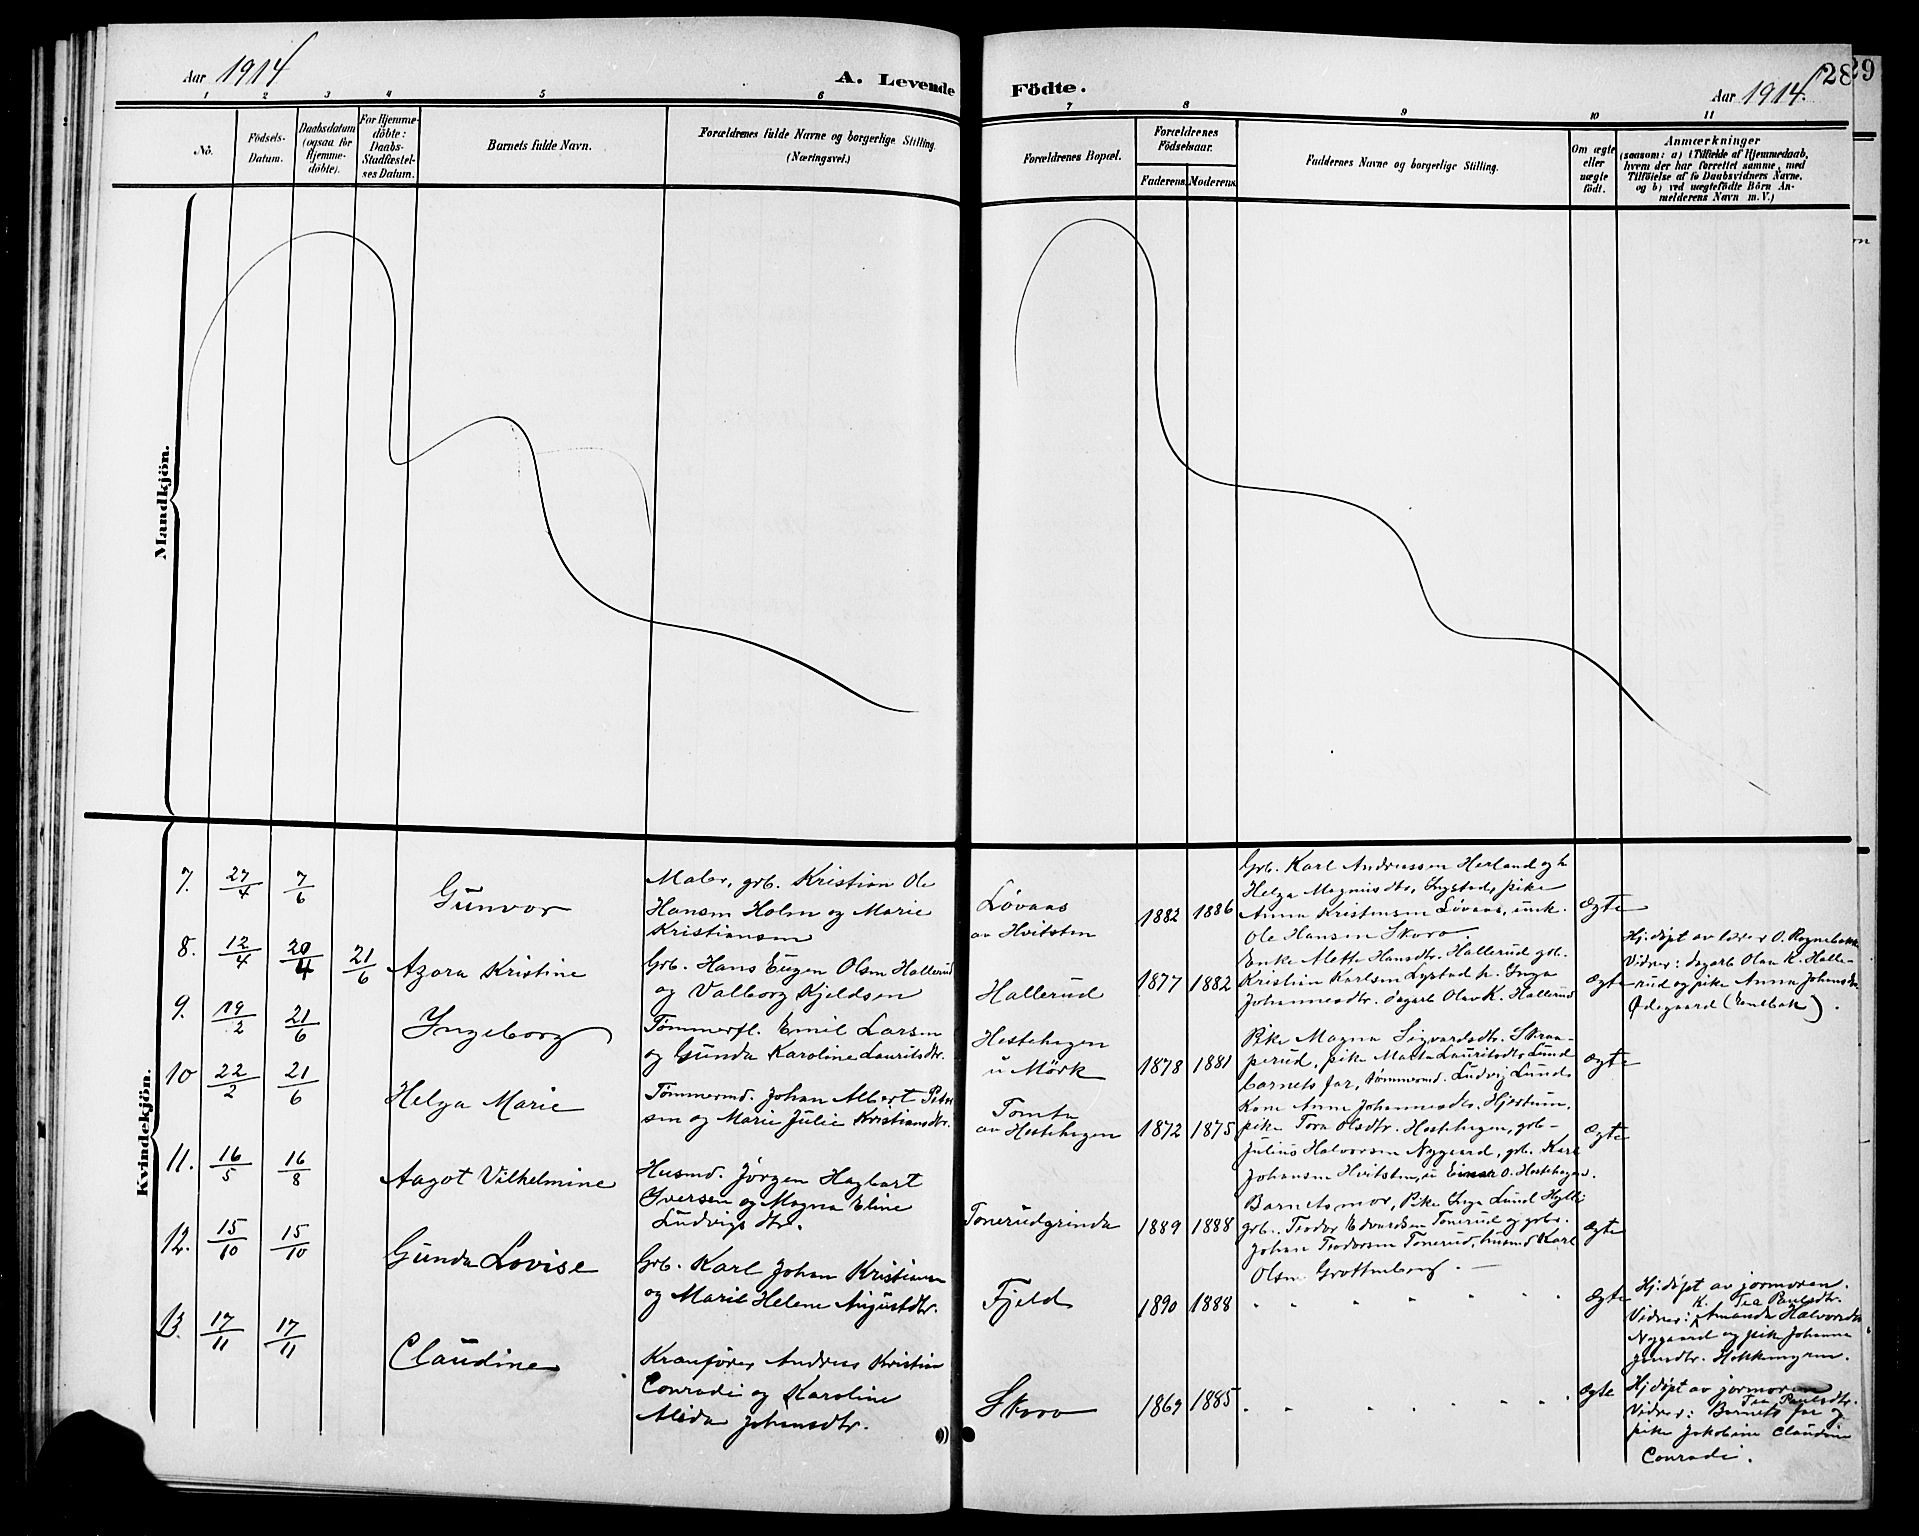 Aar 1914
A. Levende
Födte.
Aar 1914.
28
29
1 2 3 4 5 6 7 8 9 10 11
No.
Födsels-
Datum.
Daabsdatum
(ogsaa för
Hjemme-
döbte).
For Hjemme-
döbte:
Daabs-
Stadfæstel-
ses Datum.
Barnets fulde Navn.
Forældrenes fulde Navne og borgerlige Stilling.
(Næringsvei.)
Forældrenes Bopæl.
Forældrenes
Födselsaar.
Faderens. Moderens.
Faddernes Navne og borgerlige Stilling.
Om ægte
eller
uægte
födt.
Anmærkninger
(saasom: a) i Tilfælde af Hjemmedaab,
hvem der har forrettet samme, med
Tilföielse af to Daabsvidners Navne,
og b) ved uægtefödte Börn An-
melderens Navn m. V.)
Mandkjön.
Kvindekjön.
7.
27/4
7/6
Gunvor
Maler, grb. Kristian Ole
Hansen Holm og Marie
Kristiansen
Løvaas
av Hvitsten
1882 1886
Grb. Karl Andreassen Herland og h.
Helga Magnusdtr. Lystad, pike
Anna Kristensen Løvaas, unk.
Ole Hansen Skoro
Ægte
8.
12/4
20/4
21/6
Azora Kristine
Grb. Hans Eugen Olsen Hallerud
og Valborg Kjeldsen
Hallerud
1877 1882
Enke Alette Hansdtr. Hallerud grb.
Kristian Karlsen Lystad h. Inga
Johannesdtr. dagarb Olav K. Hallerud
Ægte
Hj.døpt av lærer O. Rognebakke
Vidner: dagarb Olav K. Halle-
rud og pike Anna Johansdtr.
Ødegaard (Enebak).
9.
19/2
21/6
Ingeborg
Tømmerfl. Emil Larsen
og Gunda Karoline Lauritsdtr.
Hestehagen
u Mörk
1878 1881
Pike Magna Sigvardsdtr. Skraa-
perud, pike Marta Lauritsdtr Lund
barnets far, tømmermd. Ludvig Lund
Ægte
10
22/2
21/6
Helga Marie
Tømmermd. Johan Albert Peter
sen og Marie Julie Kristiansdtr.
Tomta
av Hestehagen
1872 1875
Kone Anne Johannesdtr. Hjertum,
pike Tora Olsdtr. Hestehagen, grb.
Julius Halvorsen Nygaard, grb. Karl
Johansen Hvitsten, u Einar O. Hestehagen.
Ægte
11.
16/5
16/8
Aagot Vilhelmine
Husmd. Jørgen Hagbart
Iversen og Magna Eline
Ludvigsdtr.
Tonerudgrinda
1889 1888
Barnets mor, Pike Inga Lund Hylli
grb. Teodor Edvardsen Tonerud og grbs.
Johan Teodorsen Tonerud, husmd Karl
Olsen Grottenberg. —
Ægte
12.
15/10
15/10
Gunda Lovise
Grb. Karl Johan Kristiansen
og Marie Helene Augustdtr.
Fjeld
1890 1888
" " " " " " "
Ægte
Hj.døpt av jormoren
K. Tea Paulsdtr.
Vidner: Amanda Halvorsdtr
Nygaard og pik Johanne
Jensdtr. Hokkemyren.
13.
17/11
17/11
Claudine
Kranfører Andreas Kristian
Conradi og Karoline
Alida Johansdtr.
Skoro
1869 1885
" " " " " " "
Ægte
Hj.døpt av jormoren
Tea Paulsdtr.
Vidner: Barnets far og
pike Jakobine Claudine
Conradi.